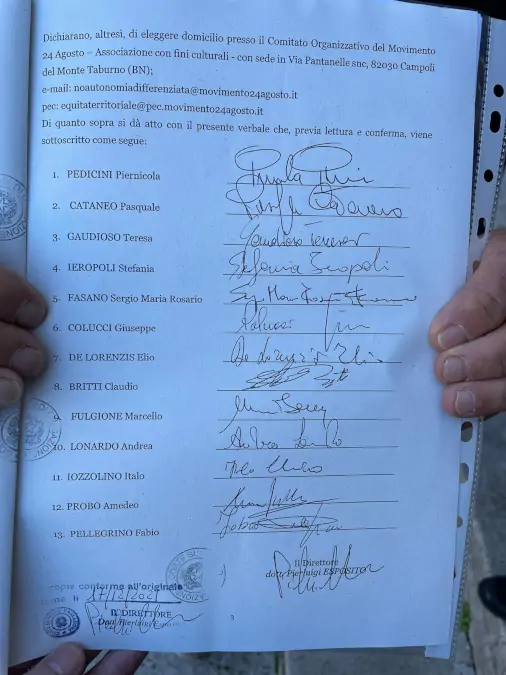 Dichiarano, altresì, di eleggere domicilio presso il Comitato Organizzativo del Movimento
24 Agosto – Associazione con fini culturali - con sede in Via Pantanelle snc, 82030 Campoli
del Monte Taburno (BN);
e-mail: noautonomiadifferenziata@movimento24agosto.it
pec: equitaterritoriale@pec.movimento24agosto.it
Di quanto sopra si dà atto con il presente verbale che, previa lettura e conferma, viene
sottoscritto come segue:
1. PEDICINI Piernicola
2. CATANEO Pasquale
3. GAUDIOSO Teresa Gaudioso Teresa
4. IEROPOLI Stefania Stefania Ieropoli
5. FASANO Sergio Maria Rosario
6. COLUCCI Giuseppe
7. DE LORENZIS Elio De Lorenzis Elio
8. BRITTI Claudio
9. FULGIONE Marcello
10. LONARDO Andrea Andrea
11. IOZZOLINO Italo
12. PROBO Amedeo
13. PELLEGRINO Fabio Fabio
Il Direttore
dott. Pierluigi ESPOSITO
Copia conforme all'originale
17/12/2021
IL DIRETTORE
Dott. Pierluigi
3